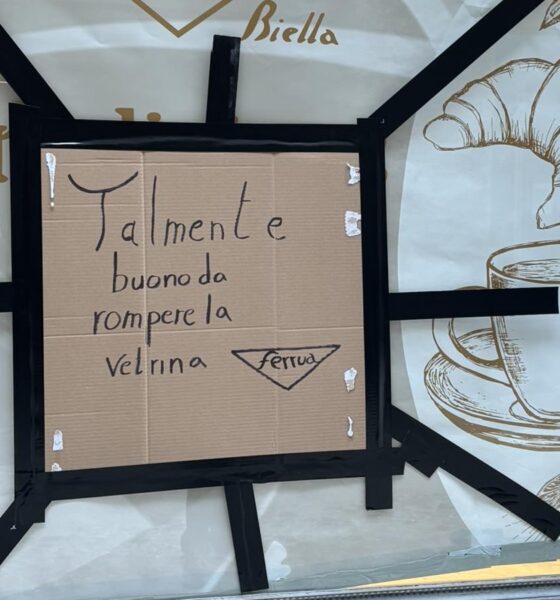 Biella
Talmente
buono da
rompere la
vetrina ferrua